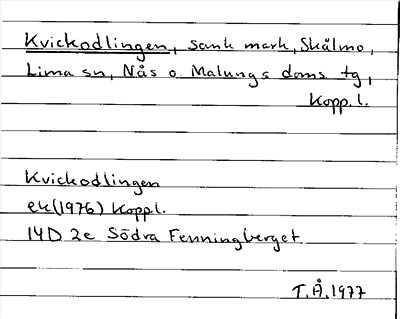 Kvickodlingen, sank mark, Skålmo,
Lima sn, Nås o Malungs doms tg,
Kopp.l.
Kvickodlingen
ek(1976) Koppl.
14D 2e Södra Fenningberget
T.Å.1977